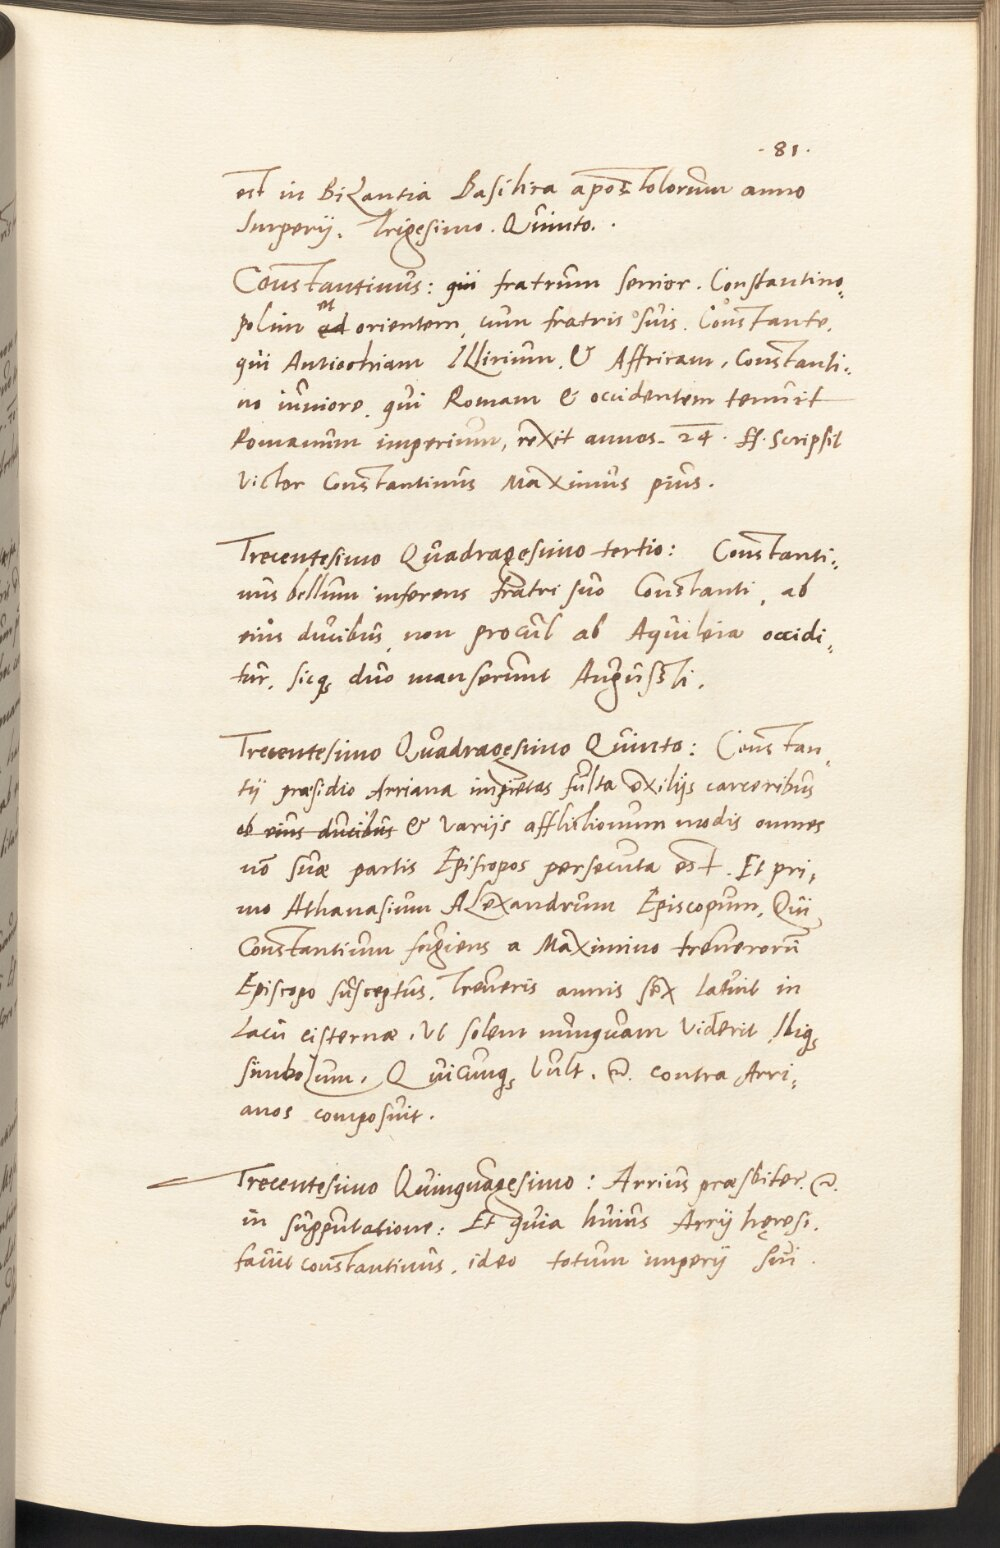 · 81 ·
est in Bizantia Basilica apostolorum anno
Imperij. Trigesimo. Quinto. ·
Constantinus: qui fratrum senior. Constantino„
polim et ad orientem, cum fratris suis. Constante.
qui Antiochiam Illirium, & Affricam, Constanti„
no iuniore. qui Romam & occidentem tenuit
Romanum imperium, rexit annos. 24. ff. scripsit
Victor Constantinus Maximus pius.
Trecentesimo Quadragesimo tertio: Constanti„
nus bellum inferens fratri suo Constanti, ab
eius ducibus, non procul ab Aquileia occidi„
tur, sicq; duo manserunt Augusti.
Trecentesimo Quadragesimo Quinto: Constan„
tij præsidio Arriana impietas fulta exilijs carceribus
ab eius ducibus & varijs afflictionum modis omnes
nō suæ partis Episcopos persecuta est. Et pri„
mo Athanasium Alexandrum Episcopum, Qui
Constantium fugiens a Maximino treuerorū
Episcopo susceptus. Treueris annis sex latuit in
Lacu cisternæ. Ut solem nunquam viderit Ibiq;
simbolum. Quicunq; vult. &. contra Arri„
anos composuit.
Trecentesimo Quinquagesimo: Arrius præsbiter. &.
in supputatione: Et quia huius Arrij hęresi.
fauit constantinus. ideo totum imperij sui.